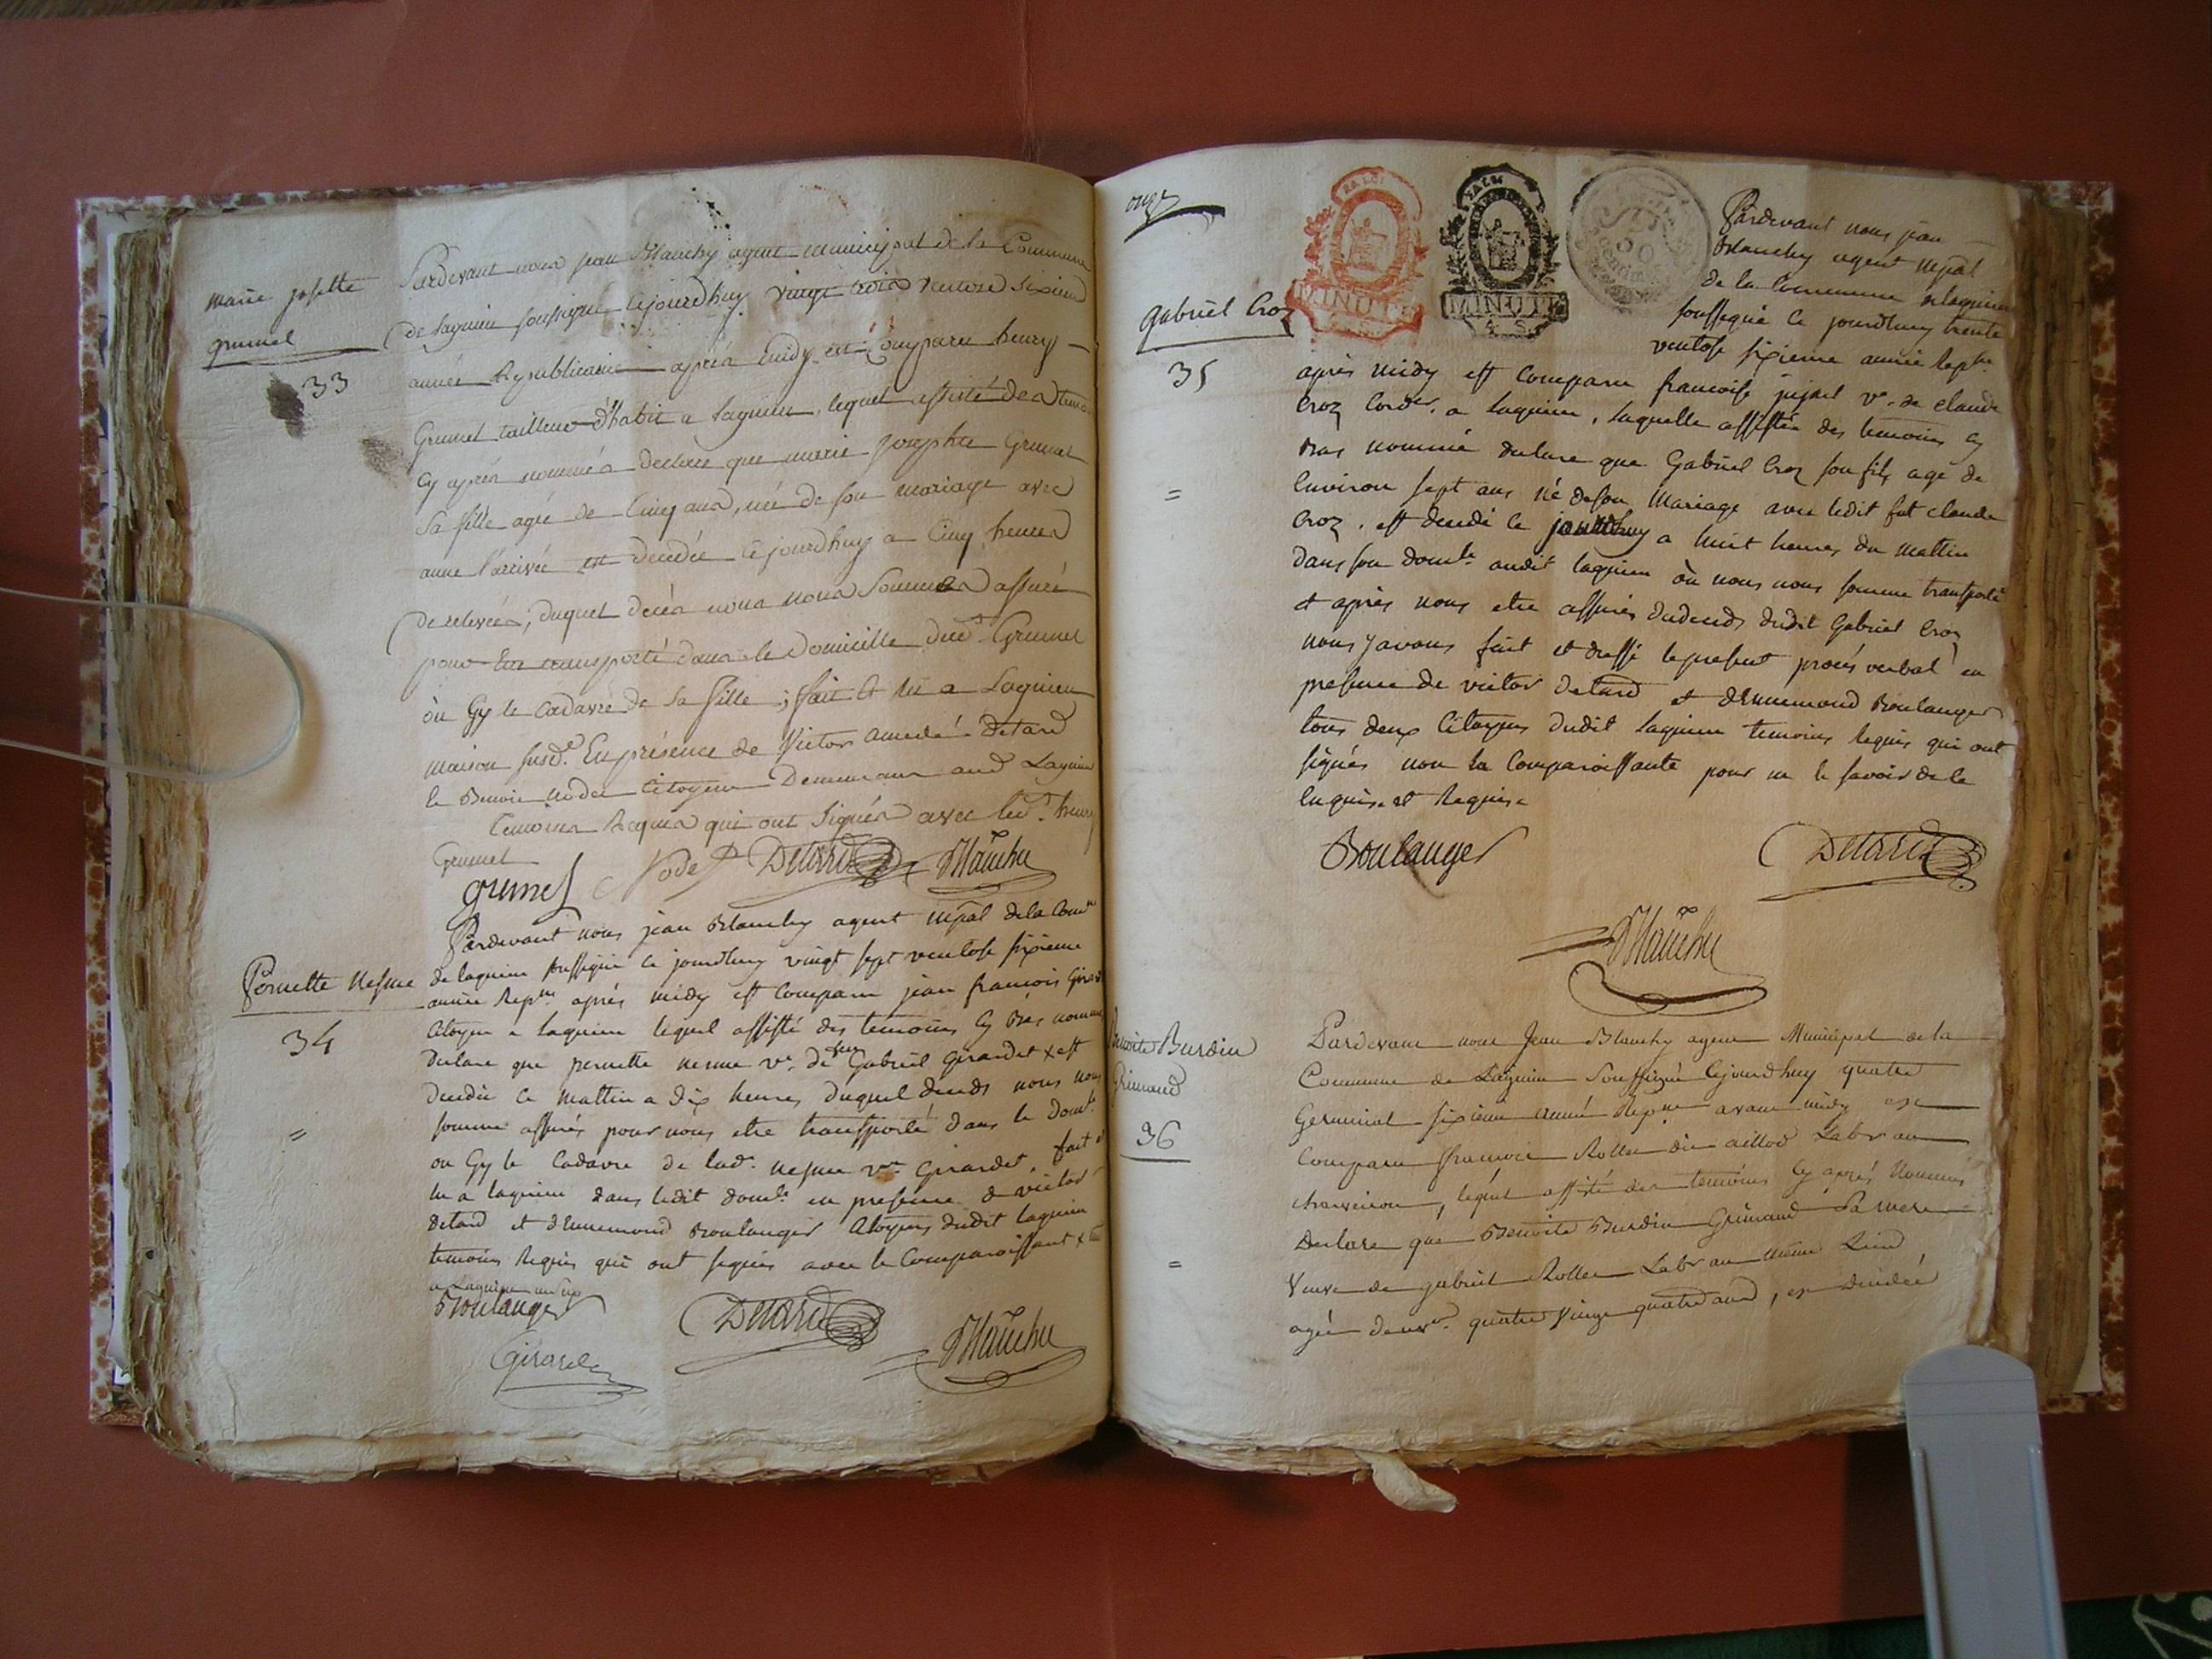 marie josette
grumel
33
Pardevant nous jean Blanchy agent municipal de la Commune
de lagnieu soussigné cejourdhuy vingt trois ventose sixieme
année Republicaine après midy est comparu henry
Grumel tailleur d'habit a lagnieu, lequel assisté des temoins
cy après nommés declare que marie josephte Grumel
sa fille agée de cinq ans, née de son mariage avec
anne l'arrivée est decedée cejourdhuy a cinq heures
de relevées, duquel decès nous nous sommes assuré
pour être transporté dans le domicille dud. Grumel
où Gy le cadavre de sa fille ; fait & lu a Lagnieu
maison susd. En présence de Victor amedé detard
le Benoit nodet citoyens Demeurans aud Lagnieu
temoins Requis qui ont signés avec led. henry
Grumel
grumel Nodet Detard Blanchy
Pernette Nesme
34
=
Pardevant nous jean Blanchy agent mpal de la Comne
de lagnieu soussigné ce jourdhuy vingt sept ventose sixieme
année Repne après midy est comparu jean françois Girard
Citoyen a lagnieu lequel assisté des temoins cy bas nommé
declare que pernette nesme ve. de feu Gabriel Girardet x est
decedée ce mattin a dix heures duquel decéds nous nous
somme assurés pour nous etre transporté dans le domle
ou Gy le cadavre de lad. nesme ve. Girardet, fait et
lu a lagnieu dans ledit domle en presence de victor
detard et d'Ennemond Boulanger Citoyens dudit lagnieu
temoins Requis qui ont signés avec le Comparoissant x
a Lagnieu
Boulanger Detard Blanchy
Girard
onze
RA LOI
MINUTE
4 S
LA LOI
MINUTE
4 S
50
centimes
Gabriel Croz
35
=
Pardevant nous jean
Blanchy agent mpal
de la Commune de lagnieu
soussigné ce jourdhuy trente
ventose sixieme année Repne
après midy est comparu francoise jujat ve. de claude
Croz Cordr. a lagnieu, laquelle assistée des temoins cy
bas nommé declare que Gabriel Croz son fils agé de
Environ sept ans né de son Mariage avec ledit fut claude
Croz. est decedé ce jourdhuy a huit heures du mattin
dans son domle. audit lagnieu où nous nous somme transporté
et après nous etre assurés dudecéds dudit Gabriel Croz
nous y avons fait et dressé le present procès verbal en
presence de victor detard et d'Ennemond Boulanger
tous deux Citoyens dudit lagnieu temoins Requis qui ont
signés non la Comparoissante pour ne le savoir de le
Enquise et Requise
Boulanger Detard
Blanchy
Benoite Burdin
Grimaud
36
=
Pardevant nous Jean Blanchy agent Municipal de la
Commune de Lagnieu Soussigné cejourdhuy quatre
Germinal sixieme année Repne avant midy est
Comparu francois Rollet dit aillod Labr au
charveiron, lequel assisté des temoins cy après Nommés
Declare que Benoite Burdin Grimaud sa mere
Veuve de gabriel Rollet Labr au même Lieu
agée denvn. quatre vingt quatre ans, est decedée